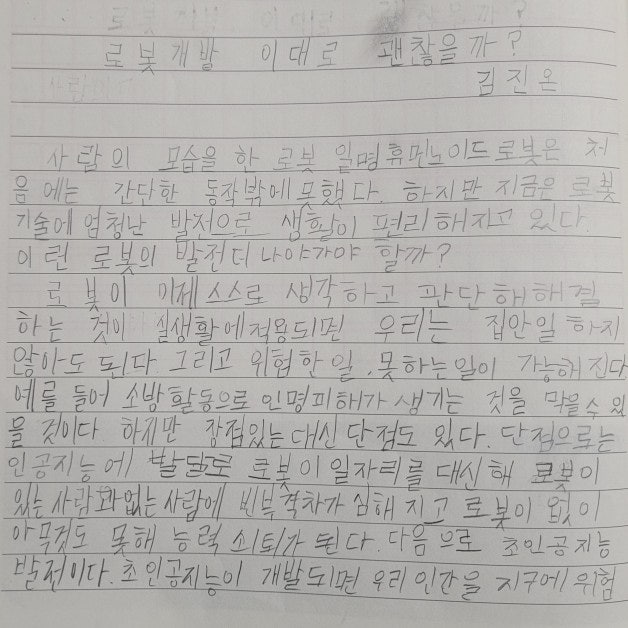 로봇개발 이대로 괜찮을까?
김진온
사람의 모습을 한 로봇 일명 휴먼노이드로봇은 처
음에는 간단한 동작밖에 못했다. 하지만 지금은 로봇
기술에 엄청난 발전으로 생활이 편리해지고 있다.
이런 로봇의 발전 더 나아가야 할까?
로봇이 이제 스스로 생각하고 판단해 해결
하는 것이 실생활에 적용되면 우리는 집안일 하지
않아도 된다. 그리고 위험한 일, 못하는 일이 가능해진다
예를 들어 소방활동으로 인명피해가 생기는 것을 막을 수 있
을 것이다 하지만 장점있는 대신 단점도 있다. 단점으로는
인공지능에 발달로 로봇이 일자리를 대신해 로봇이
있는 사람과 없는 사람에 빈부격차가 심해 지고 로봇이 없이
아무것도 못해 능력 쇠퇴가 된다. 다음으로 초인공지능
발전이다. 초인공지능이 개발되면 우리 인간을 지구에 위험